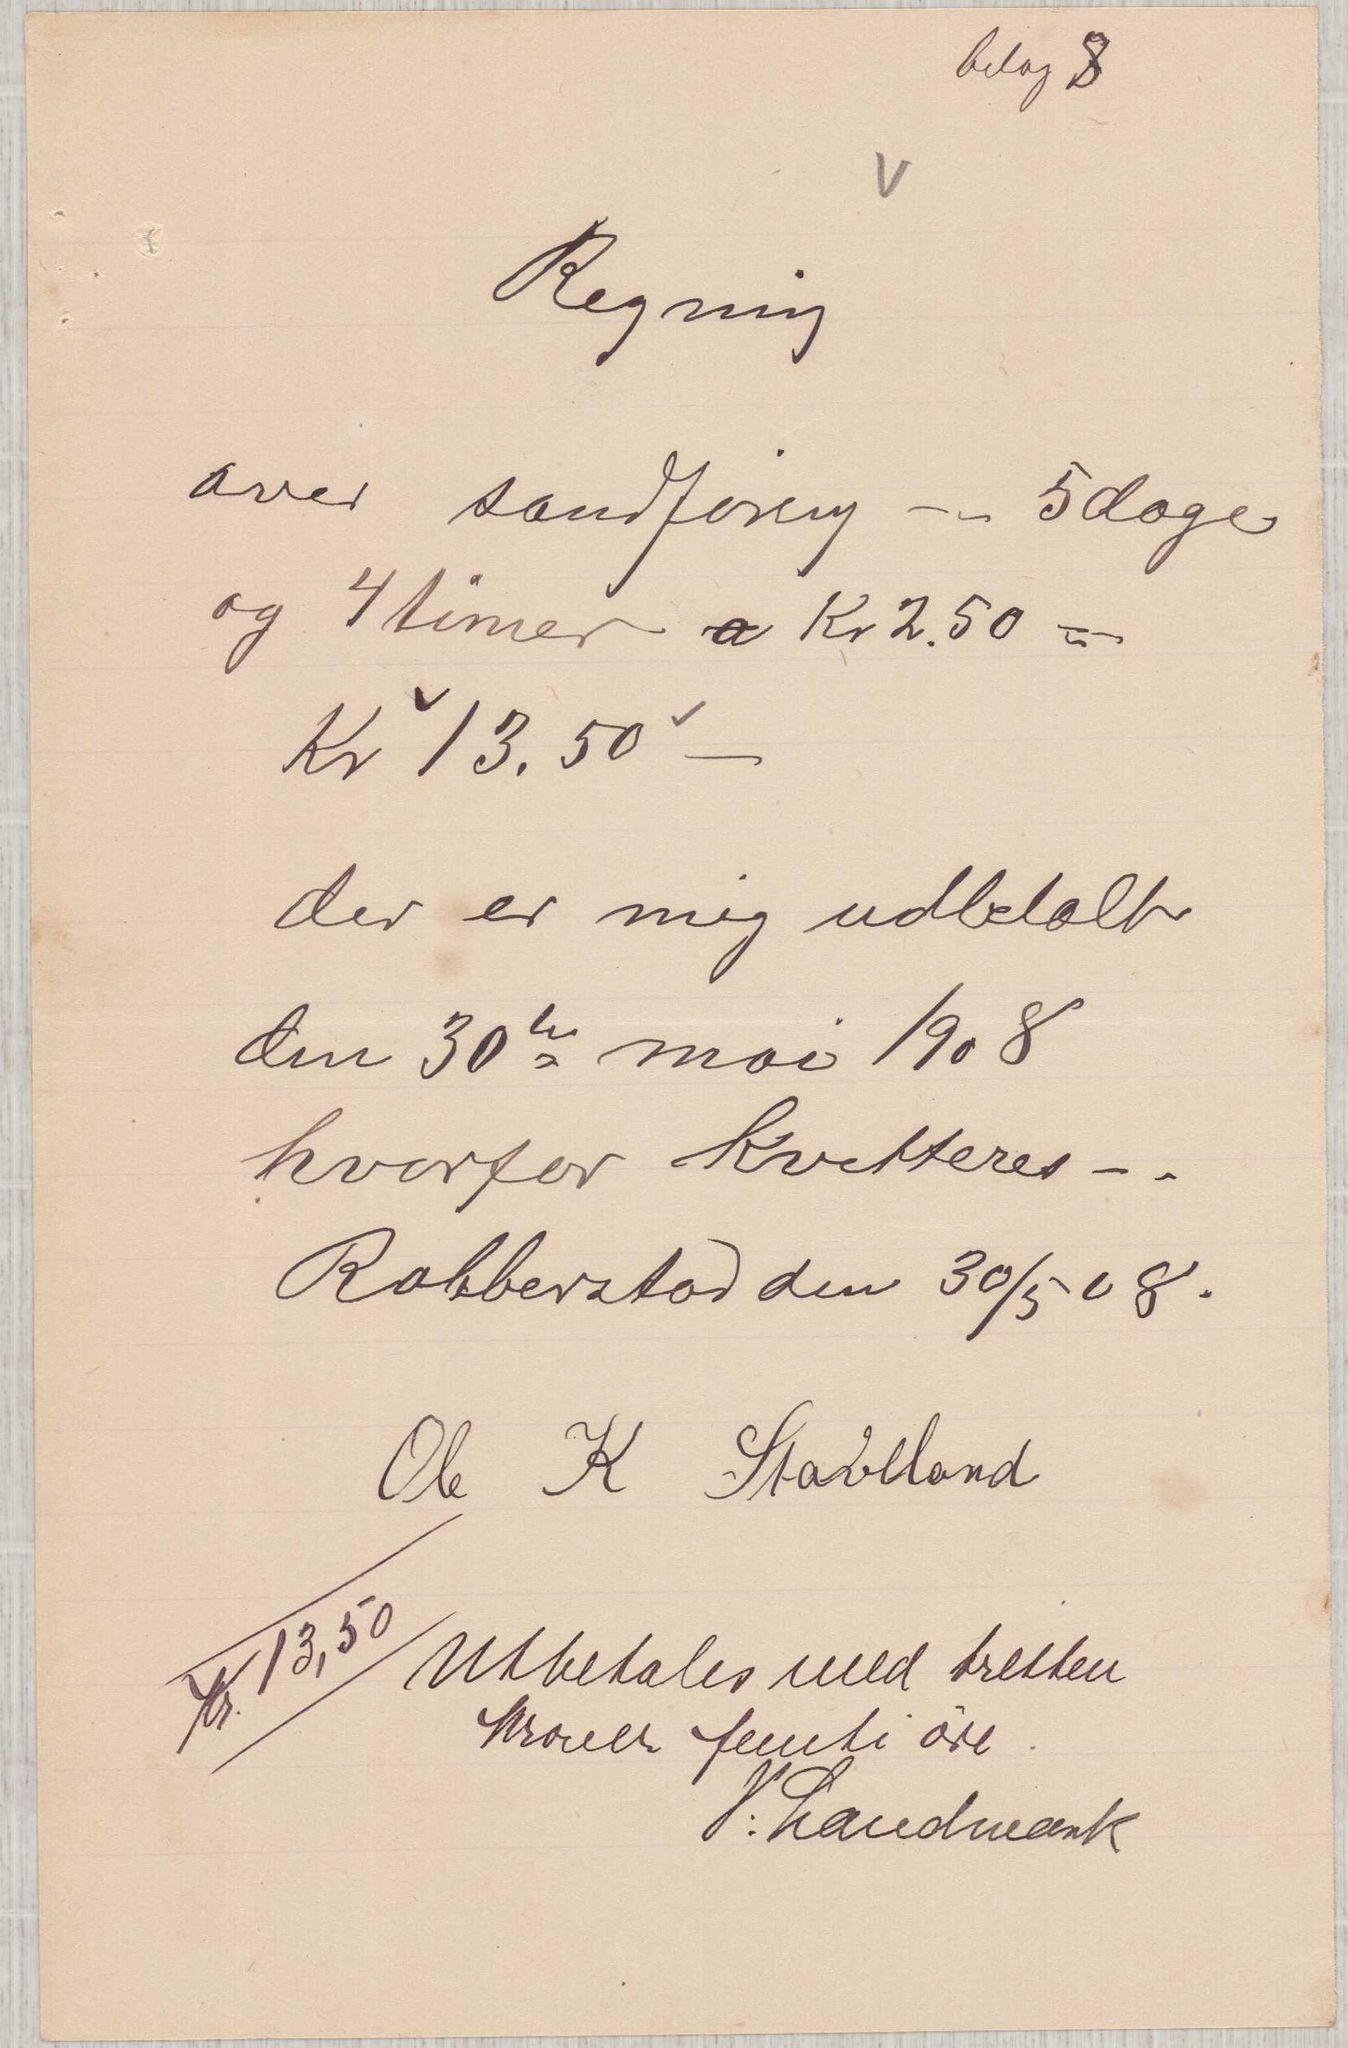 belag 8
V
Regning
over sandjoring -- 5 dage
og 4 timer a Kr 2.50 =
Kr 13.50 -
der er mig udbetalt
den 30te mai 1908
hvorfor kvitteres --
Rabberstad den 30/5 08.
Ole K Stavlland
Kr. 13,50
Utbetales med tretten
kroner femti öre.
V. Landmark